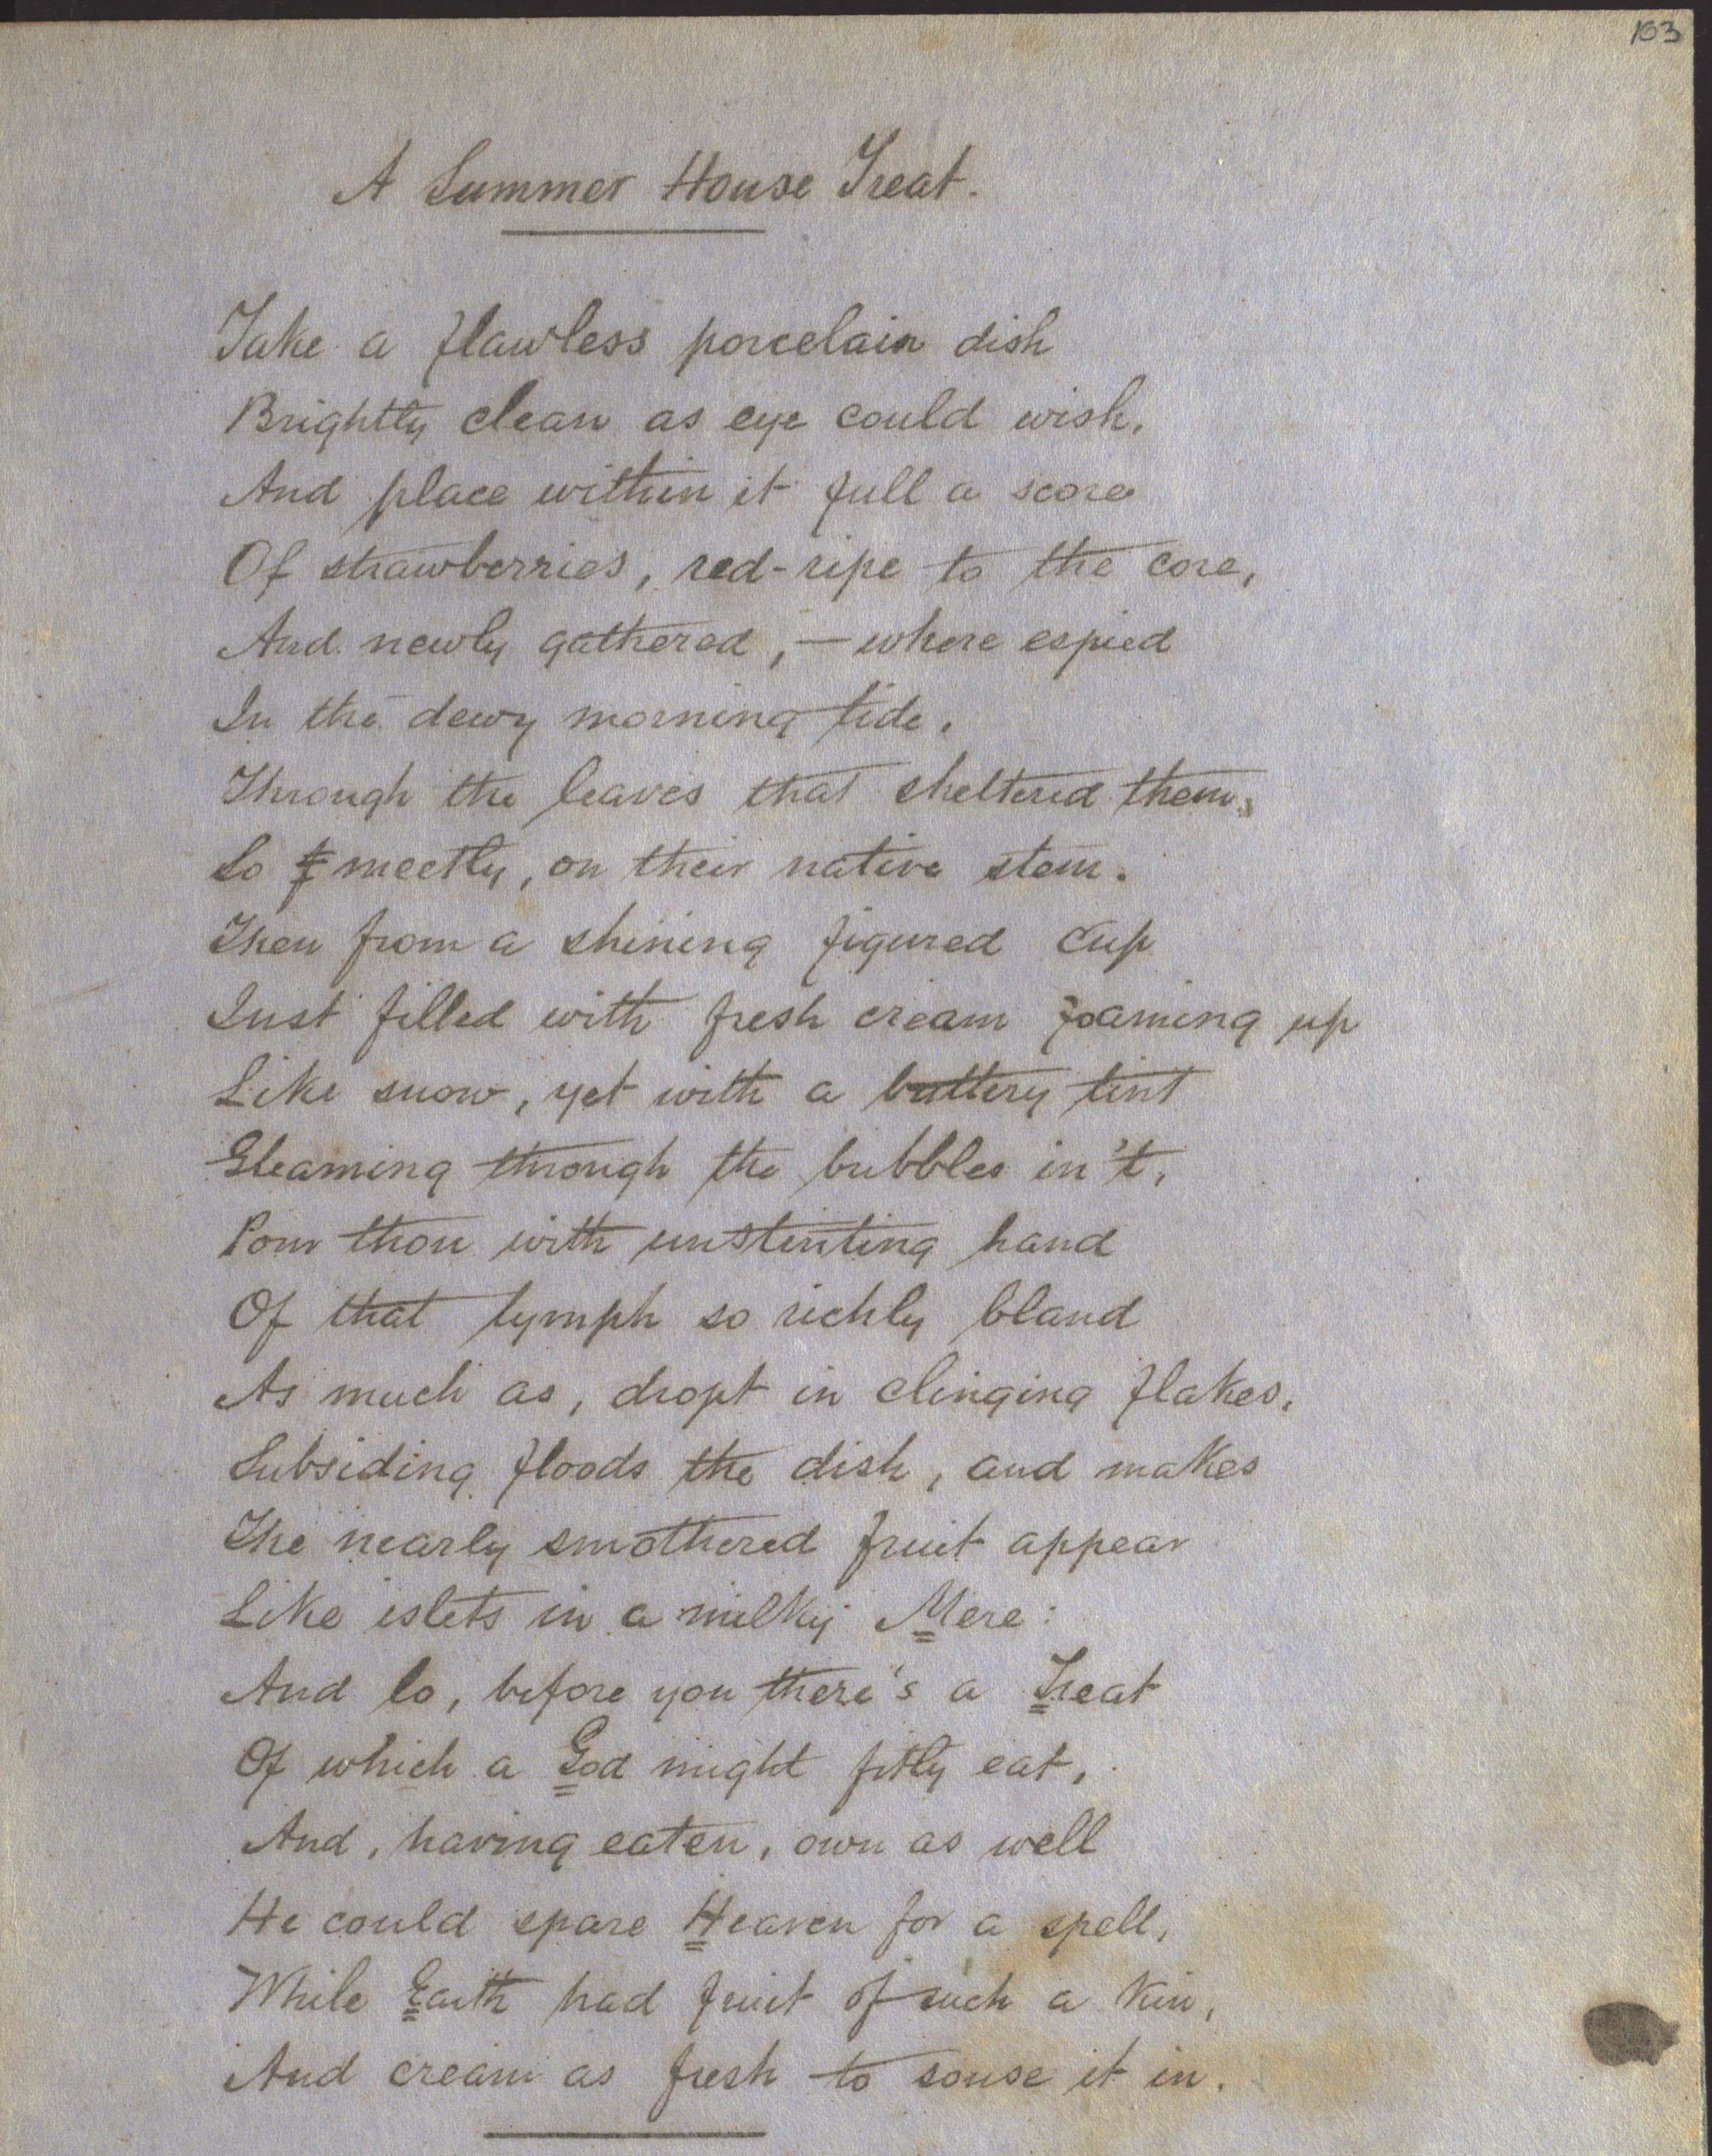 163
A Summer House Treat.
Take a flawless porcelain dish
Brightly clean as eye could wish,
And place within it full a score
Of strawberries, red-ripe to the core,
And newly gathered, — where espied
In the dewy morning tide,
Through the leaves that sheltered them,
So meetly, on their native stem.
Then from a shining figured cup
Just filled with fresh cream foaming up
Like snow, yet with a buttery tint
Gleaming through the bubbles in't,
Pour thou with unstinting hand
Of that lymph so richly bland
As much as, dropt in clinging flakes,
Subsiding floods the dish, and makes
The nearly smothered fruit appear
Like islets in a milky Mere:
And lo, before you there's a Treat
Of which a God might fitly eat,
And, having eaten, own as well
He could spare Heaven for a spell,
While Earth had fruit of such a kin,
And cream as fresh to souse it in.